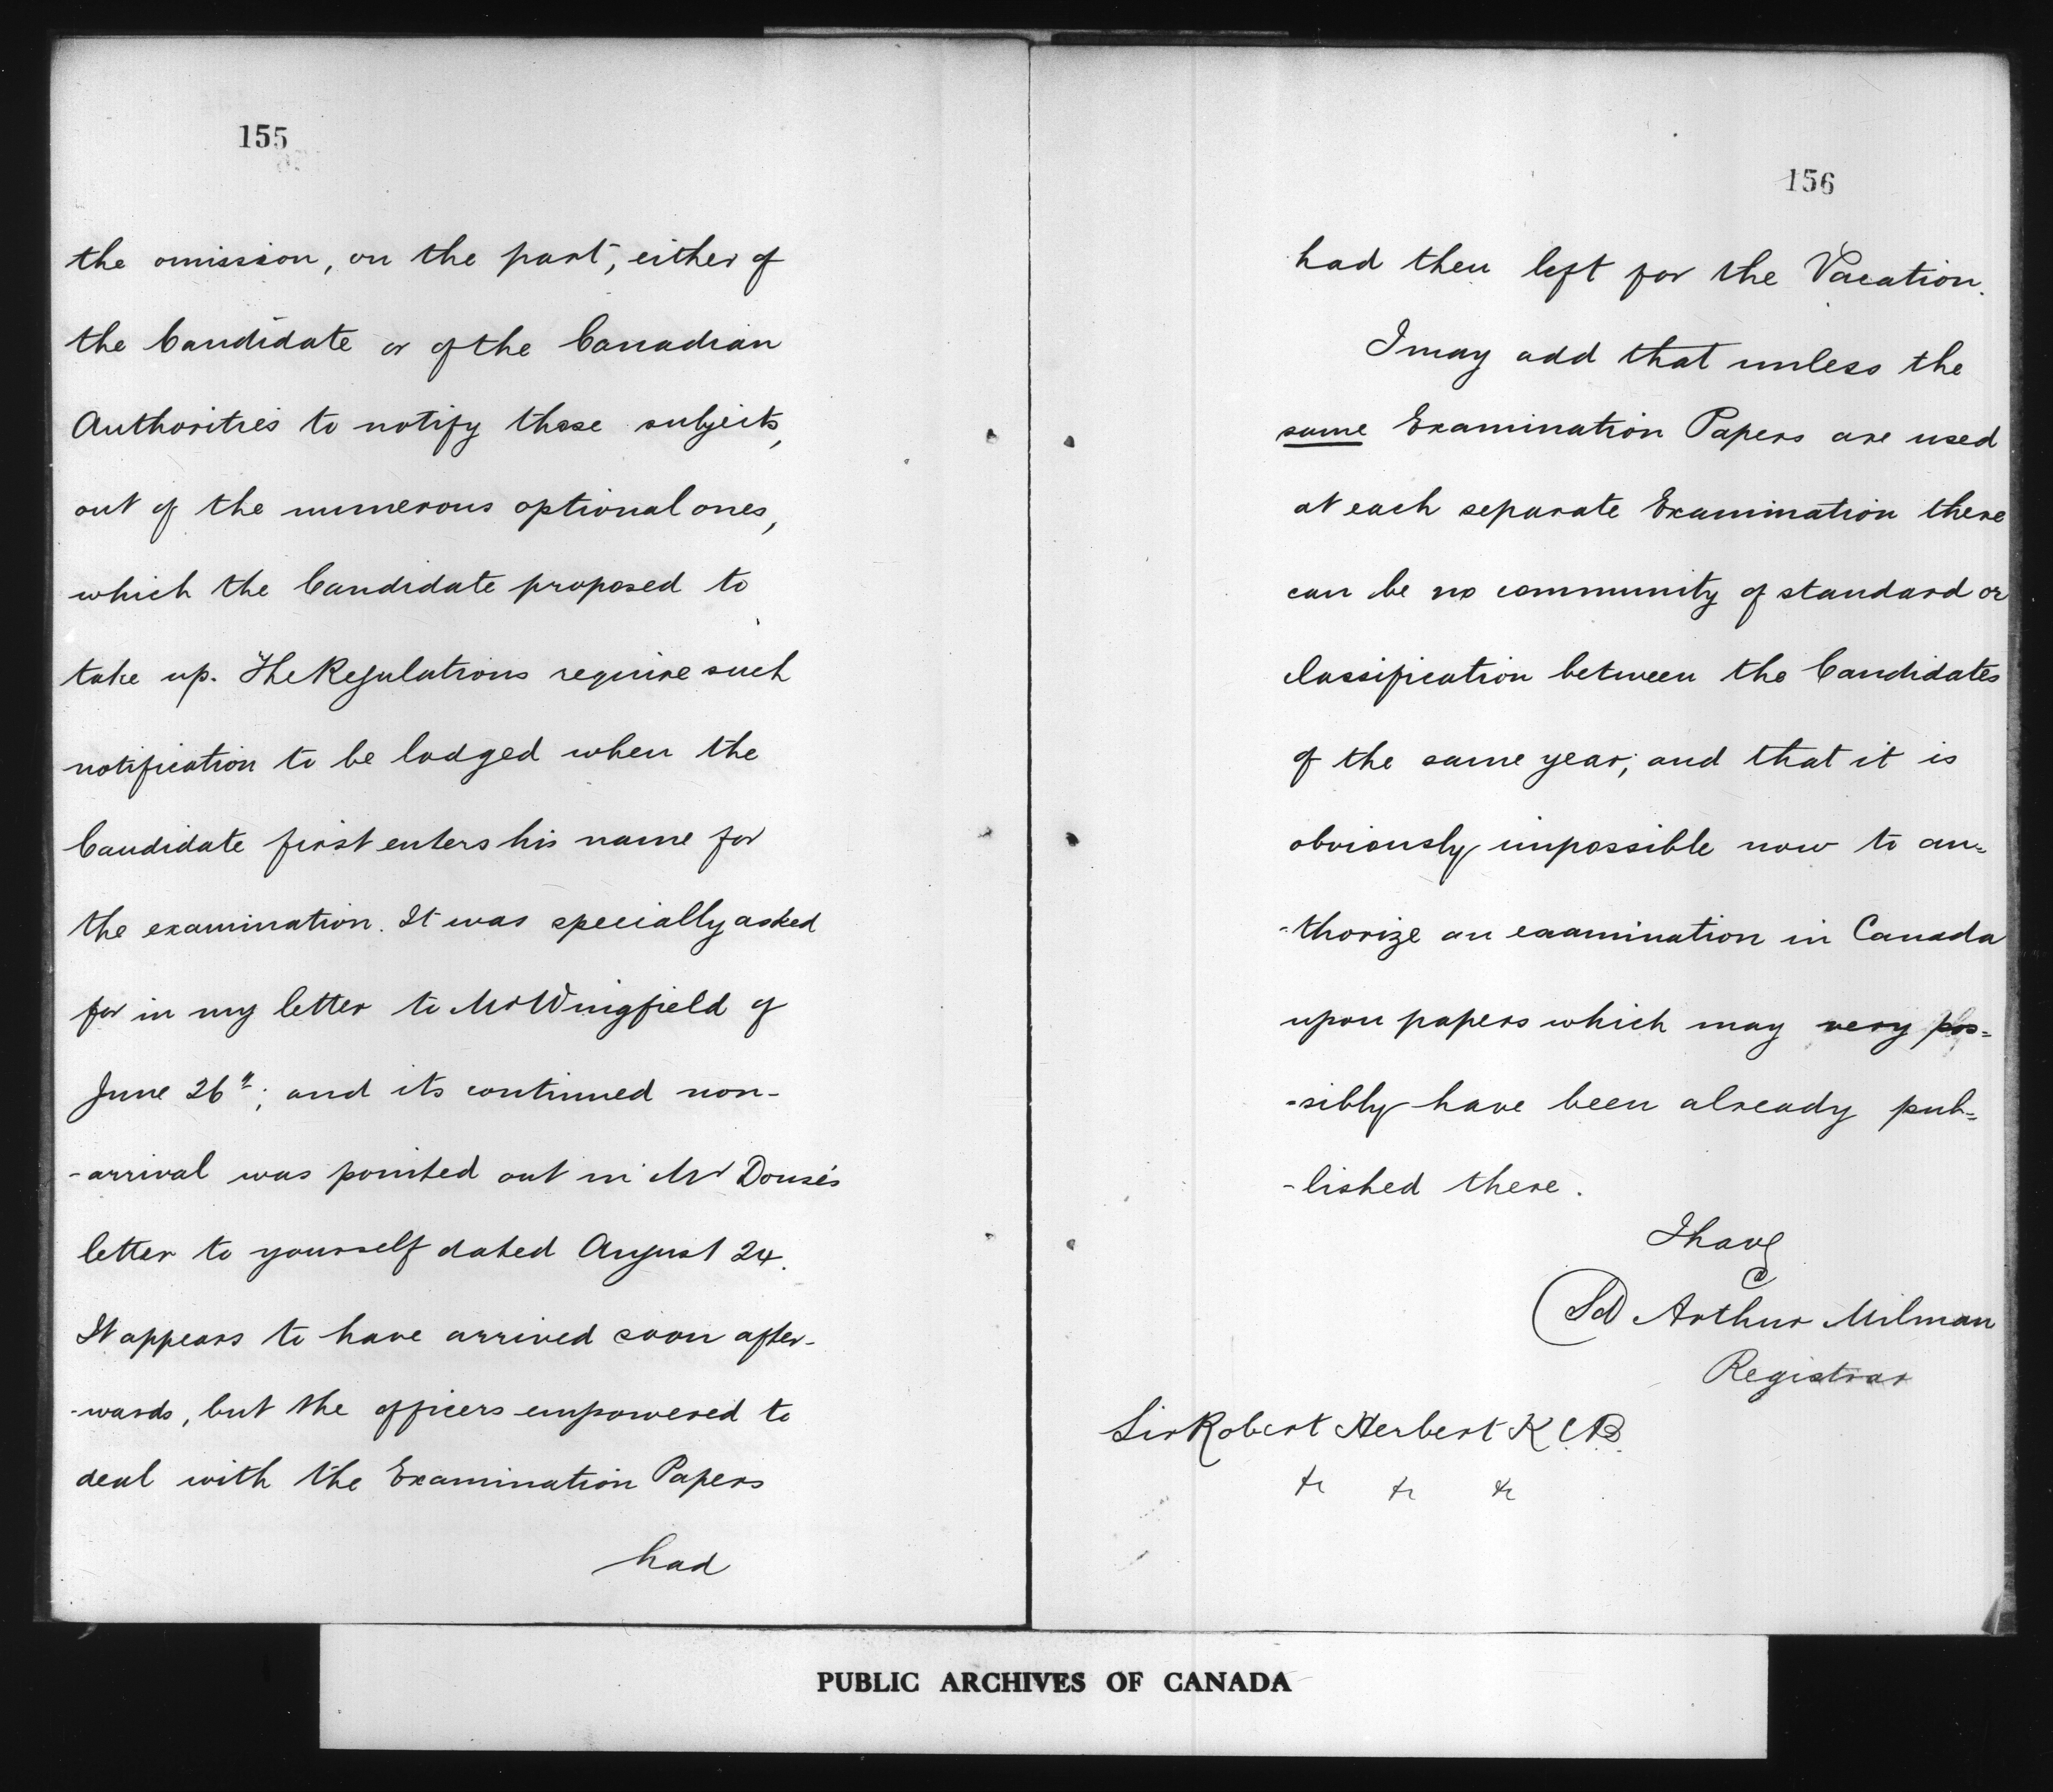 155
the omission, on the part, either of
the Candidate or of the Canadian
Authorities to notify those subjects,
out of the numerous optional ones,
which the Candidate proposed to
take up. The Regulations require such
notification to be lodged when the
Candidate first enters his name for
the examination. It was specially asked
for in my letter to Mr Wingfield of
June 26th; and its continued non-
-arrival was pointed out in Mr Douse's
letter to yourself dated August 24.
It appears to have arrived soon after-
-wards, but the officers empowered to
deal with the Examination Papers
had
156
had then left for the Vacation.
I may add that unless the
same Examination Papers are used
at each separate Examination there
can be no community of standard or
classification between the Candidates
of the same year; and that it is
obviously impossible now to au=
-thorize an examination in Canada
upon papers which may very pos=
-sibly have been already pub=
-lished there.
I have
(Sd) Arthur Milman
Registrar
Sir Robert Herbert K.C.B.
&c &c &c
PUBLIC ARCHIVES OF CANADA